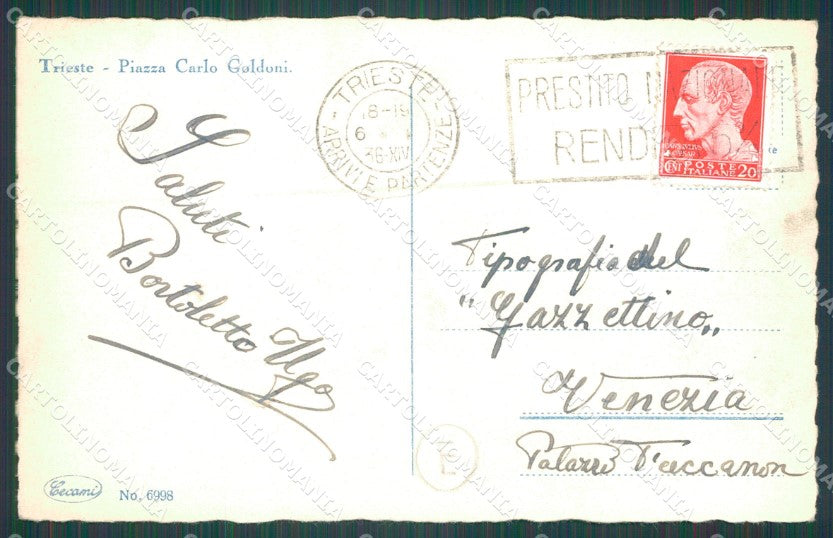 Trieste - Piazza Carlo Goldoni.
TRIESTE
18-19
6
36-XIV
ARRIVI E PARTENZE
PRESTITO
REND
POSTE
ITALIANE
CENT 20
Saluti
Bortoletto Ugo
Tipografia del
"Gazzettino"
Venezia
Palazzo Faccanon
Cecami
No. 6998
L
CARTOLINOMANIA